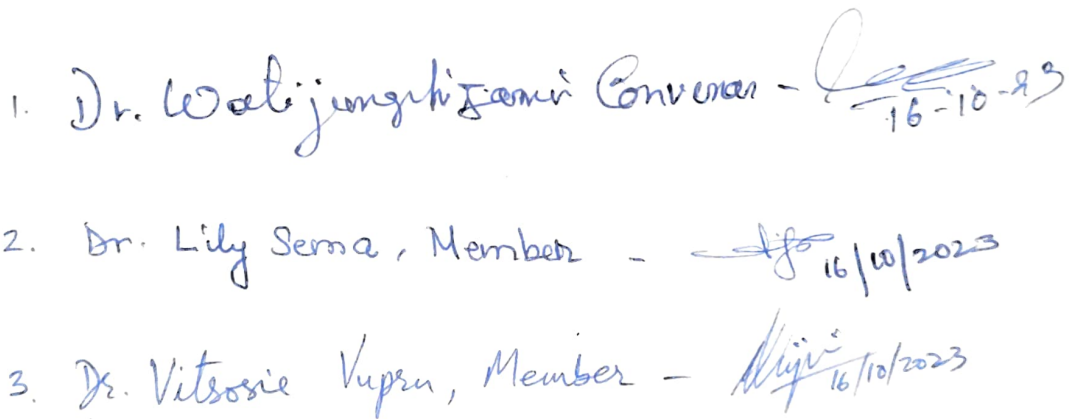 1. Dr. Watijungshi Jamir Convenor - 16-10-23
2. Dr. Lily Sema, Member - 16/10/2023
3. Dr. Vitsosie Vupru, Member - 16/10/2023